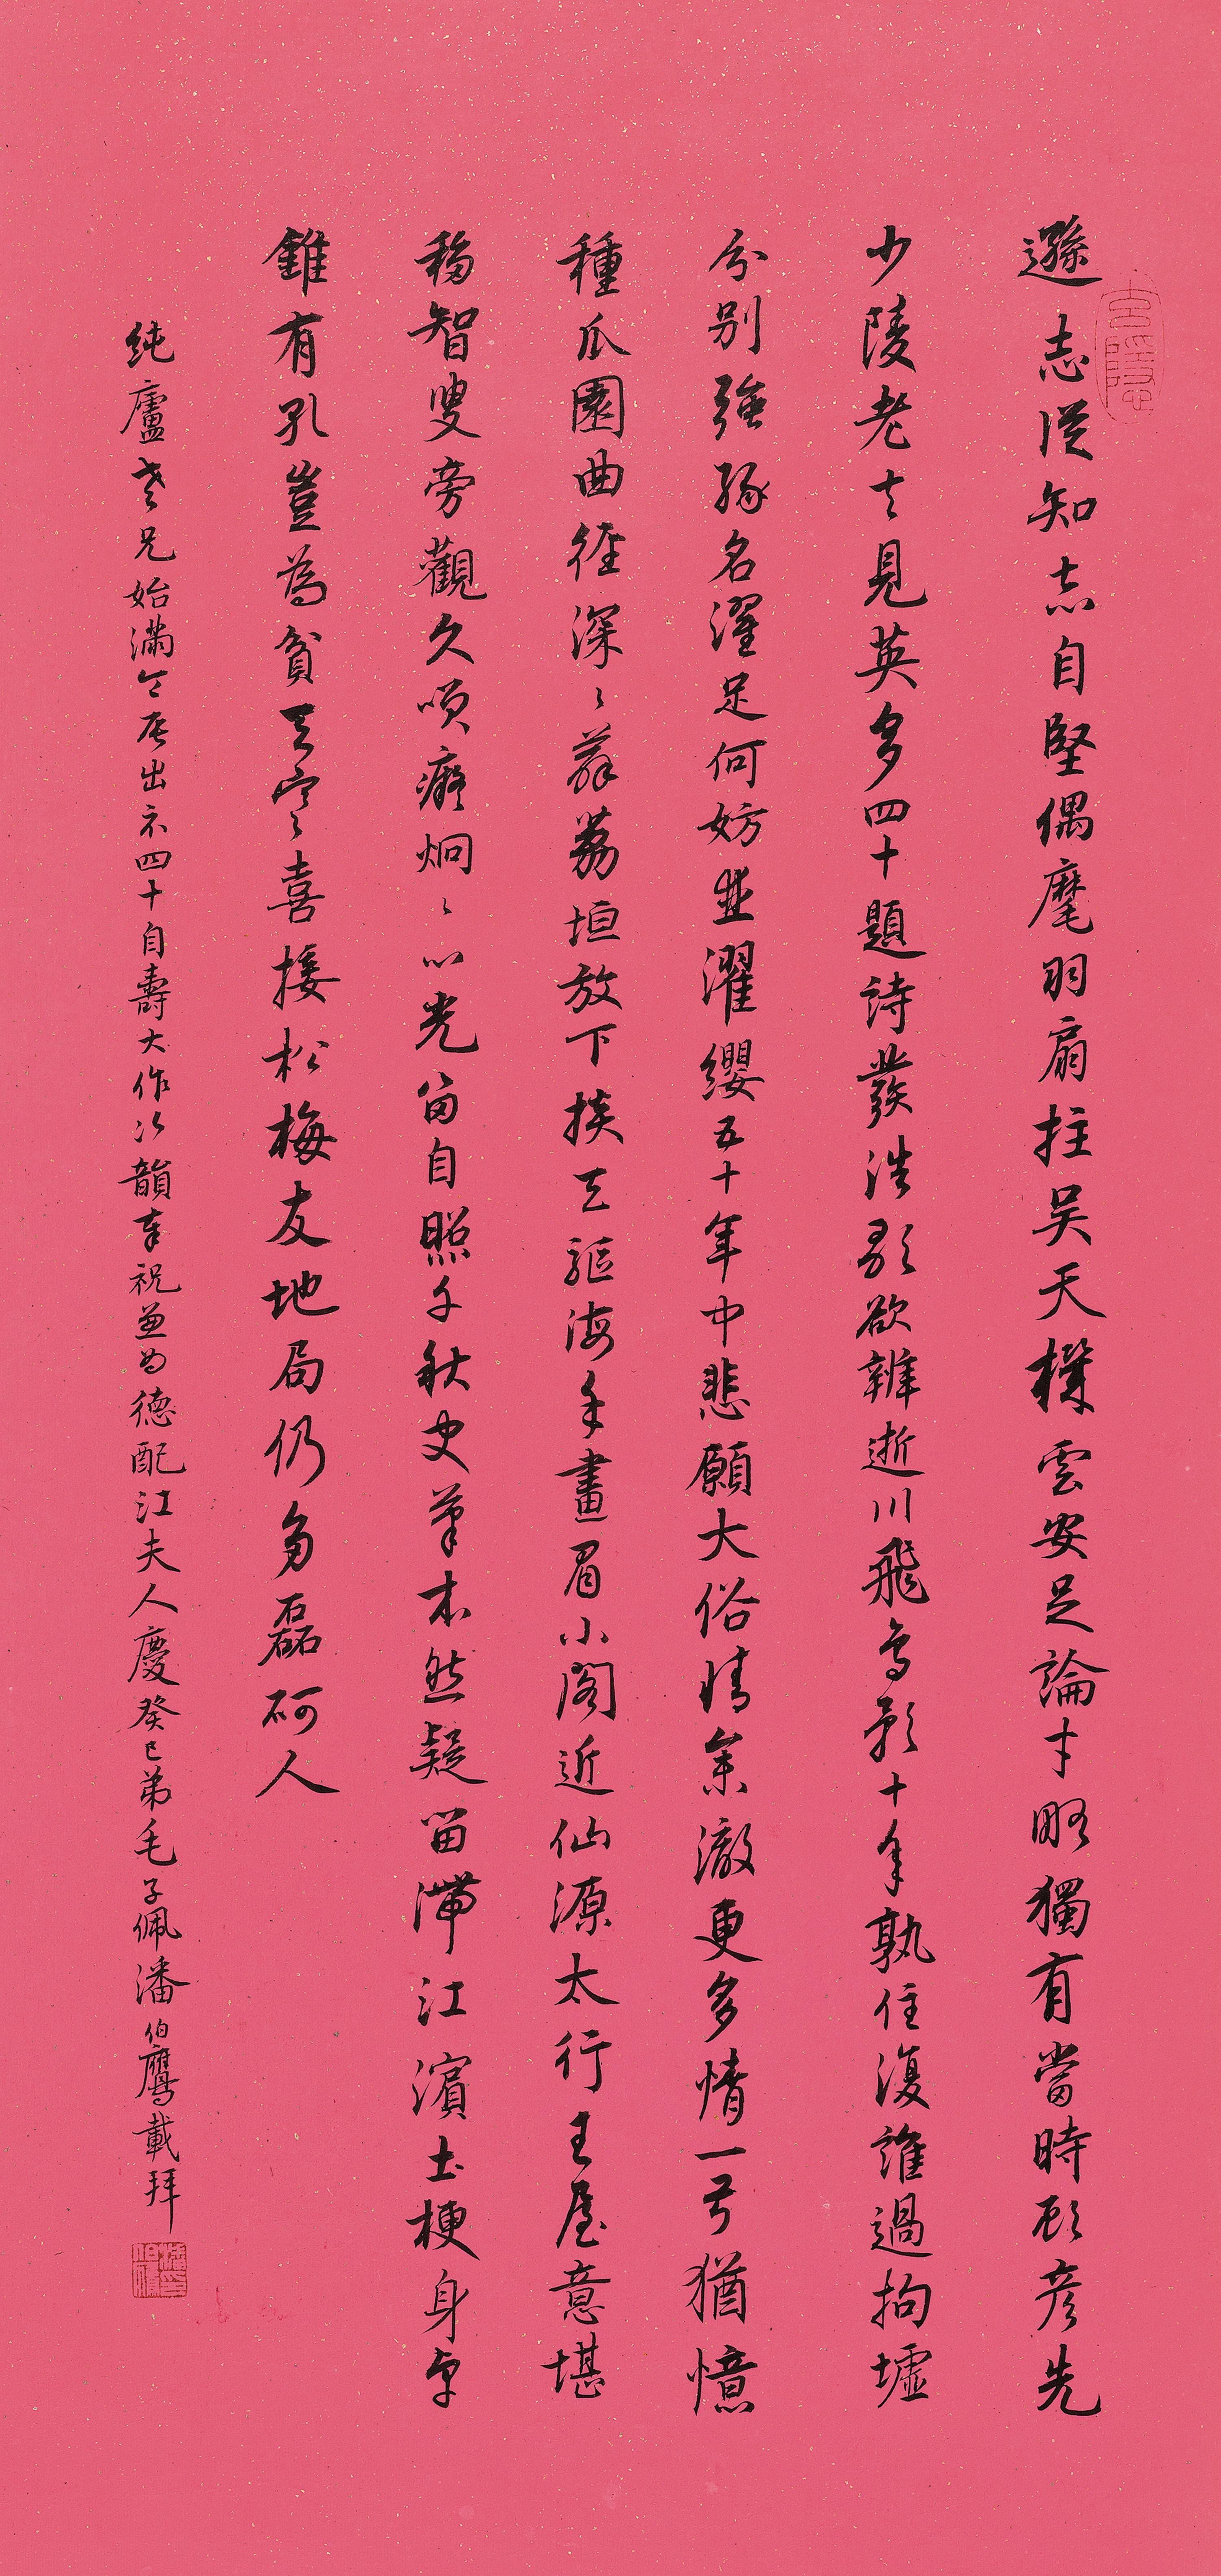 遜志從知志自堅偶麾羽扇拄吳天機雲安足論才略獨有當時顧彥先
少陵老去見英多四十題詩發浩歌欲辨逝川飛鳥影十年孰住復誰過拘墟
分別強緣名濯足何妨並濯纓五十年中悲願大俗情參澈更多情一弓猶憶
種瓜園曲徑深〻薜荔垣放下掞天驅海手畫眉小閣近仙源太行王屋意堪
移智叟旁觀久哂癡炯〻心光留自照千秋史筆本然疑留滯江濱土梗身卓
錐有孔豈為貧天寒喜接松梅友地局仍多磊砢人
純廬老兄始滿今辰出示四十自壽大作次韻奉祝兼為德配江夫人慶癸巳弟毛子佩潘伯鷹載拜